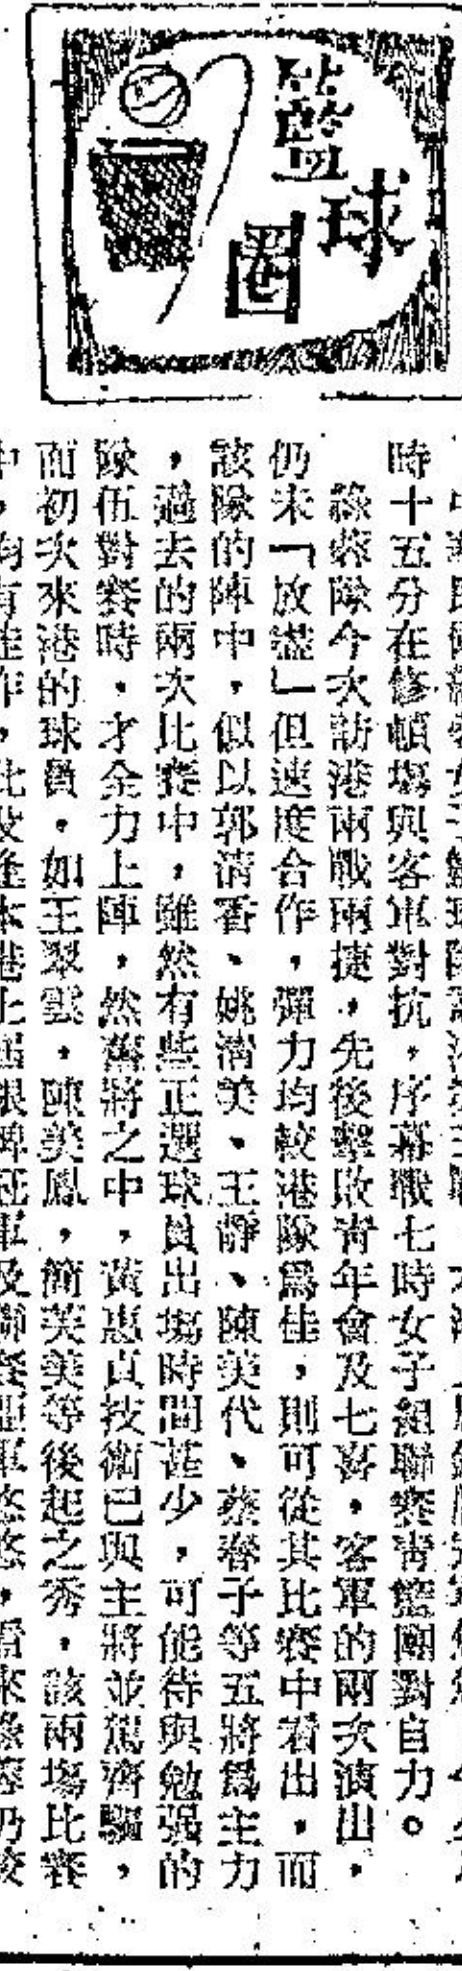 籃球圈
時十五分在修頓塲與客軍對抗，序幕戰七時女子組聯賽靑籃團對自力。
綠蓉隊今次訪港兩戰兩捷，先後擊敗靑年會及七喜，客軍的兩次演出，
仍未「放盡」但速度合作，彈力均較港隊爲佳，則可從其比賽中看出，而
該隊的陣中，似以郭淸香、姚滿美、王靜、陳美代、蔡春子等五將爲主力
，過去的兩次比賽中，雖然有些正選球員出塲時間甚少，可能待與勉强的
隊伍對賽時，才全力上陣，然舊將之中，黃惠貞技術已與主將並駕齊驅，
而初次來港的球員，如王翠雲，陳美鳳，簡芙美等後起之秀，該兩塲比賽